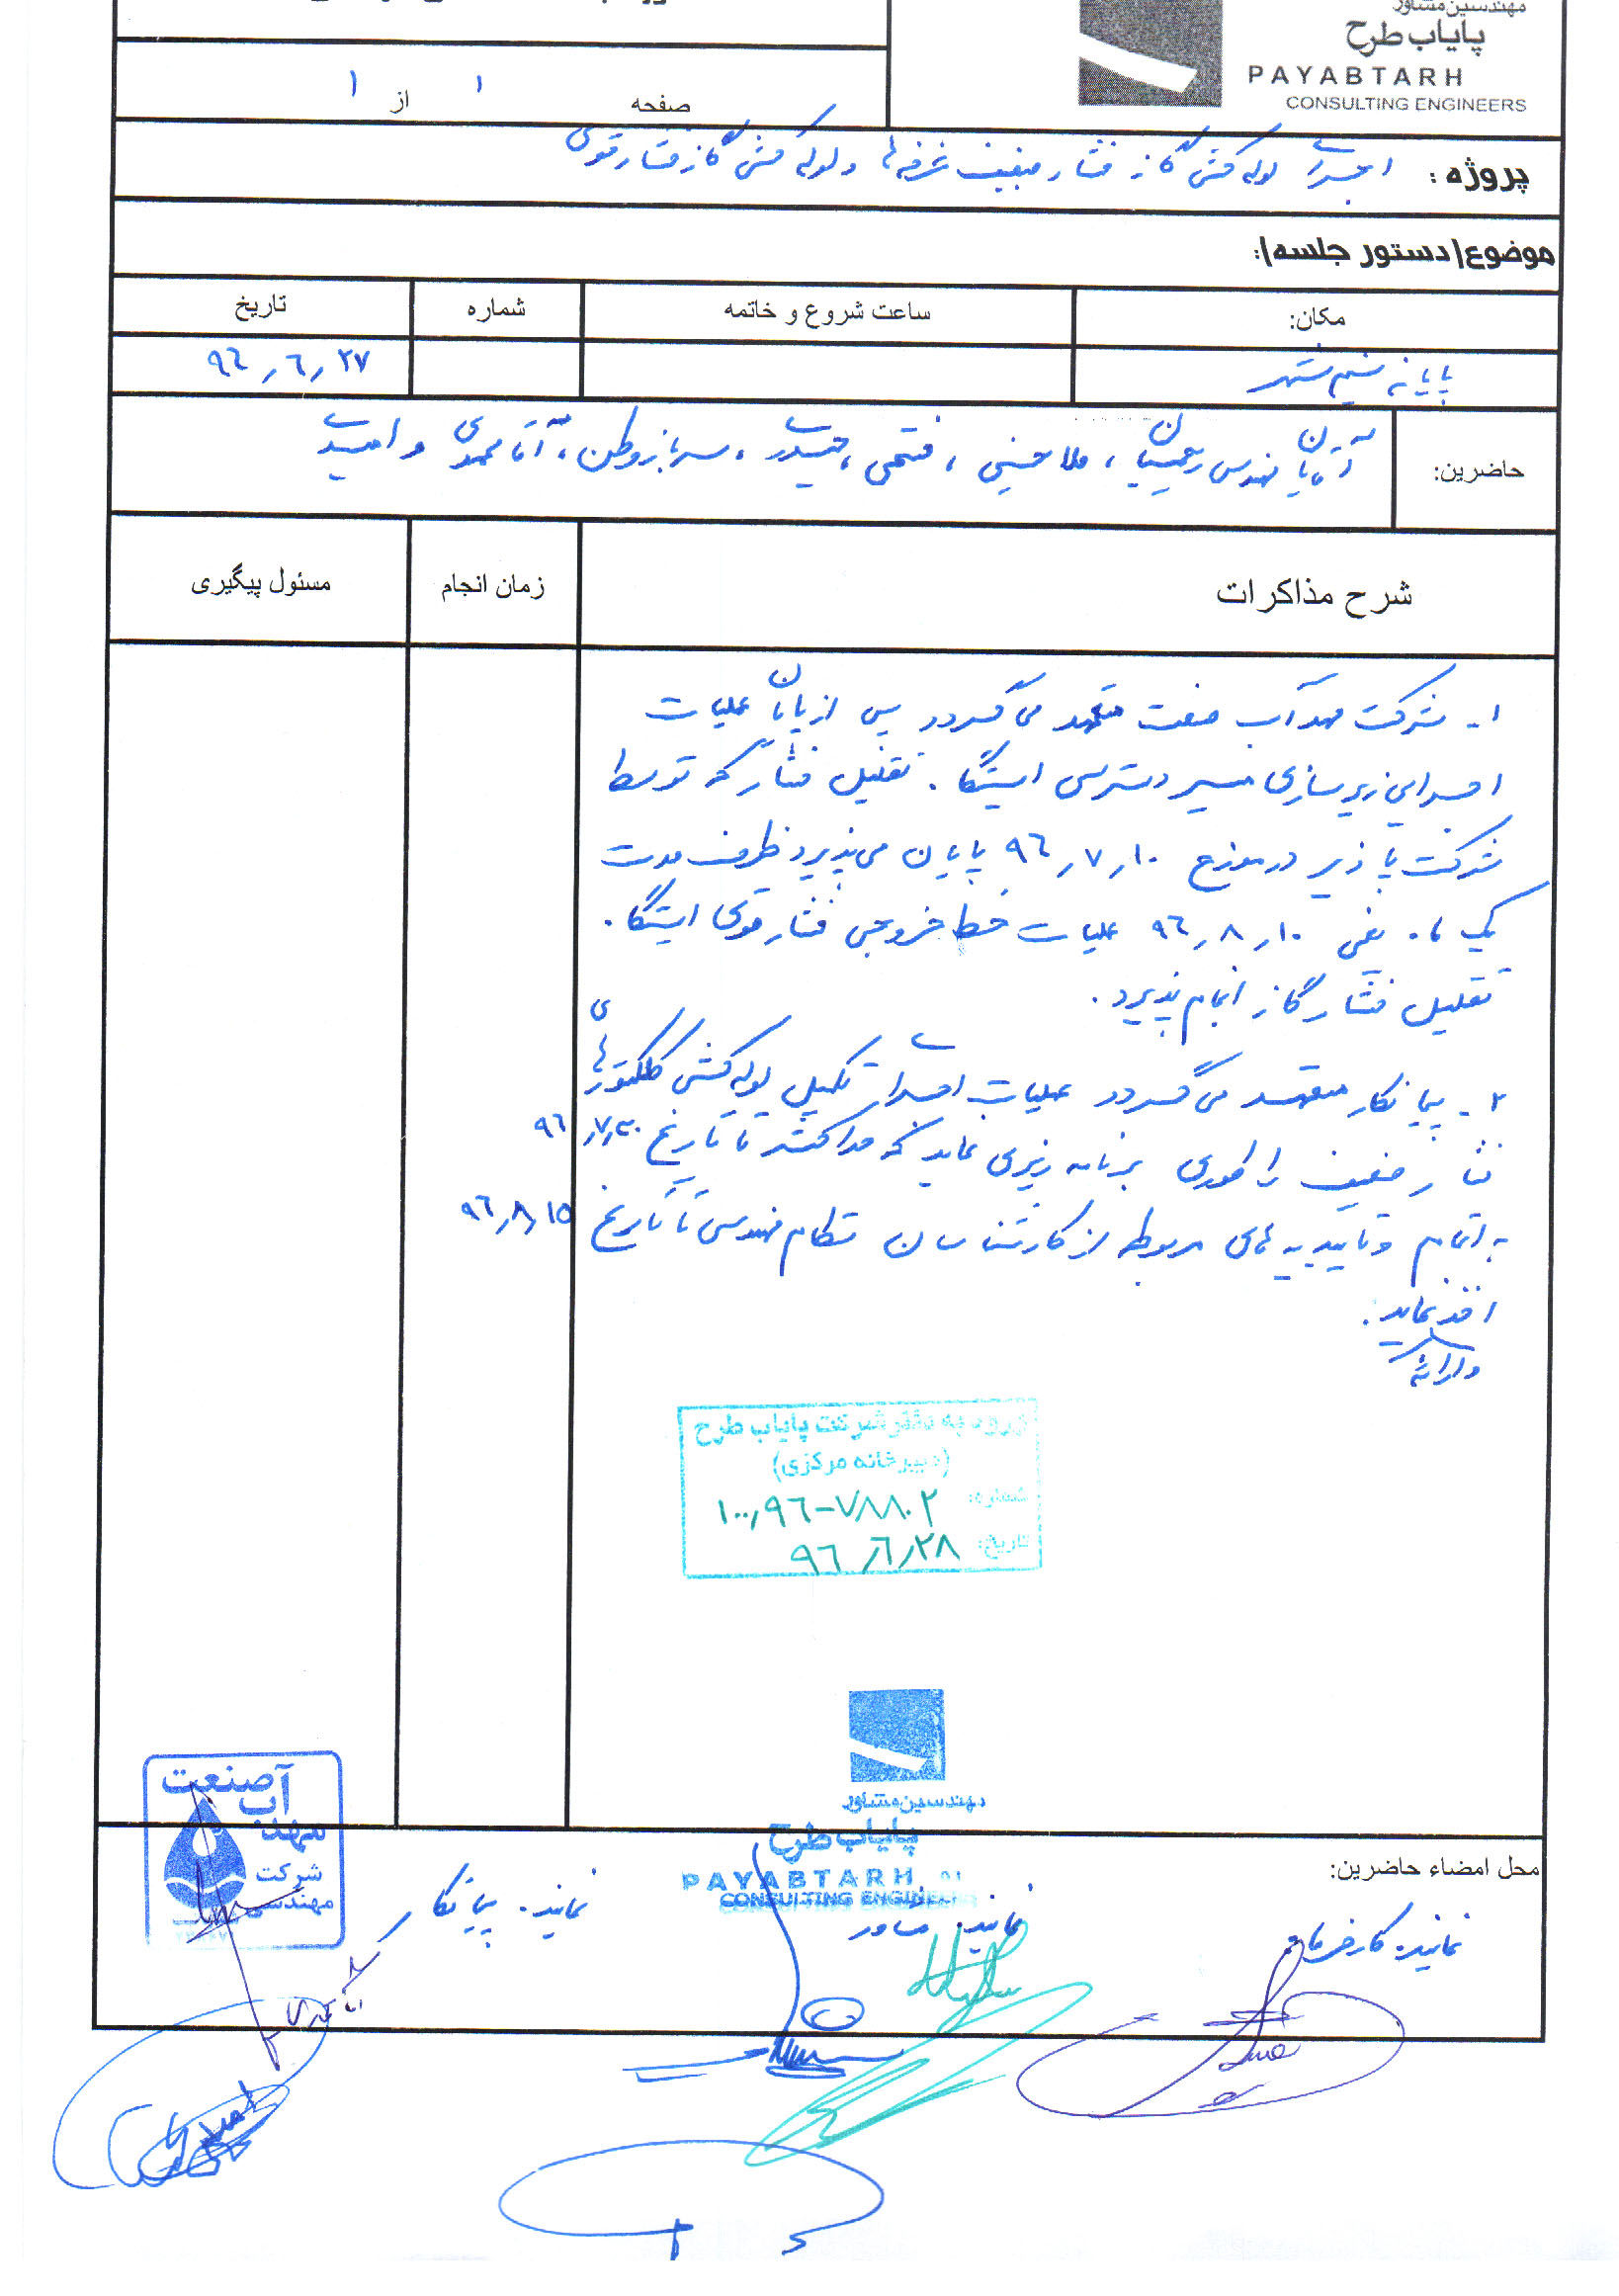 مهندسین مشاور
پایاب طرح
PAYABTARH
CONSULTING ENGINEERS
صفحه ۱ از ۱
پروژه : اجرای لوله کشی گاز فشار ضعیف غرفه ها و لوله کشی گاز فشار قوی
موضوع(دستور جلسه):
مکان: ساعت شروع و خاتمه شماره تاریخ
پایانه نسیم شهر ۹۶/۶/۲۷
حاضرین: آقایان مهندس رحیمیان ، ملاحسینی ، فتحی ، حیدری ، سرباز وطن ، آقامحمدی و امیدی
شرح مذاکرات زمان انجام مسئول پیگیری
۱- شرکت مهد آب صنعت متعهد می گردد پس از پایان عملیات
اجرایی زیرسازی مسیر دسترسی ایستگاه تقلیل فشار که توسط
شرکت در مورخ ۹۶/۷/۱۰ پایان می پذیرد ظرف مدت
یک ماه یعنی ۹۶/۸/۱۰ عملیات خط خروجی فشار قوی ایستگاه
تقلیل فشار گاز انجام پذیرد.
۲- پیمانکار متعهد می گردد عملیات اجرای تکمیل لوله کشی کلکتورهای
فشار ضعیف را طوری برنامه ریزی نماید که حداکثر تا تاریخ ۹۶/۷/۳۰
به اتمام و تاییدیه های مربوطه از کارشناسان نظام مهندسی تا تاریخ ۹۶/۸/۱۵
اخذ نماید.
وارائه
ورود به دفتر شرکت پایاب طرح
(دبیرخانه مرکزی)
شماره: ۱۰۰/۹۶-۷۸۸۰۲
تاریخ: ۹۶/۶/۲۸
مهندسین مشاور
پایاب طرح
PAYABTARH
CONSULTING ENGINEERS
آب صنعت
مهد
شرکت
مهندسی
محل امضاء حاضرین:
نماینده کارفرما نماینده مشاور نماینده پیمانکار